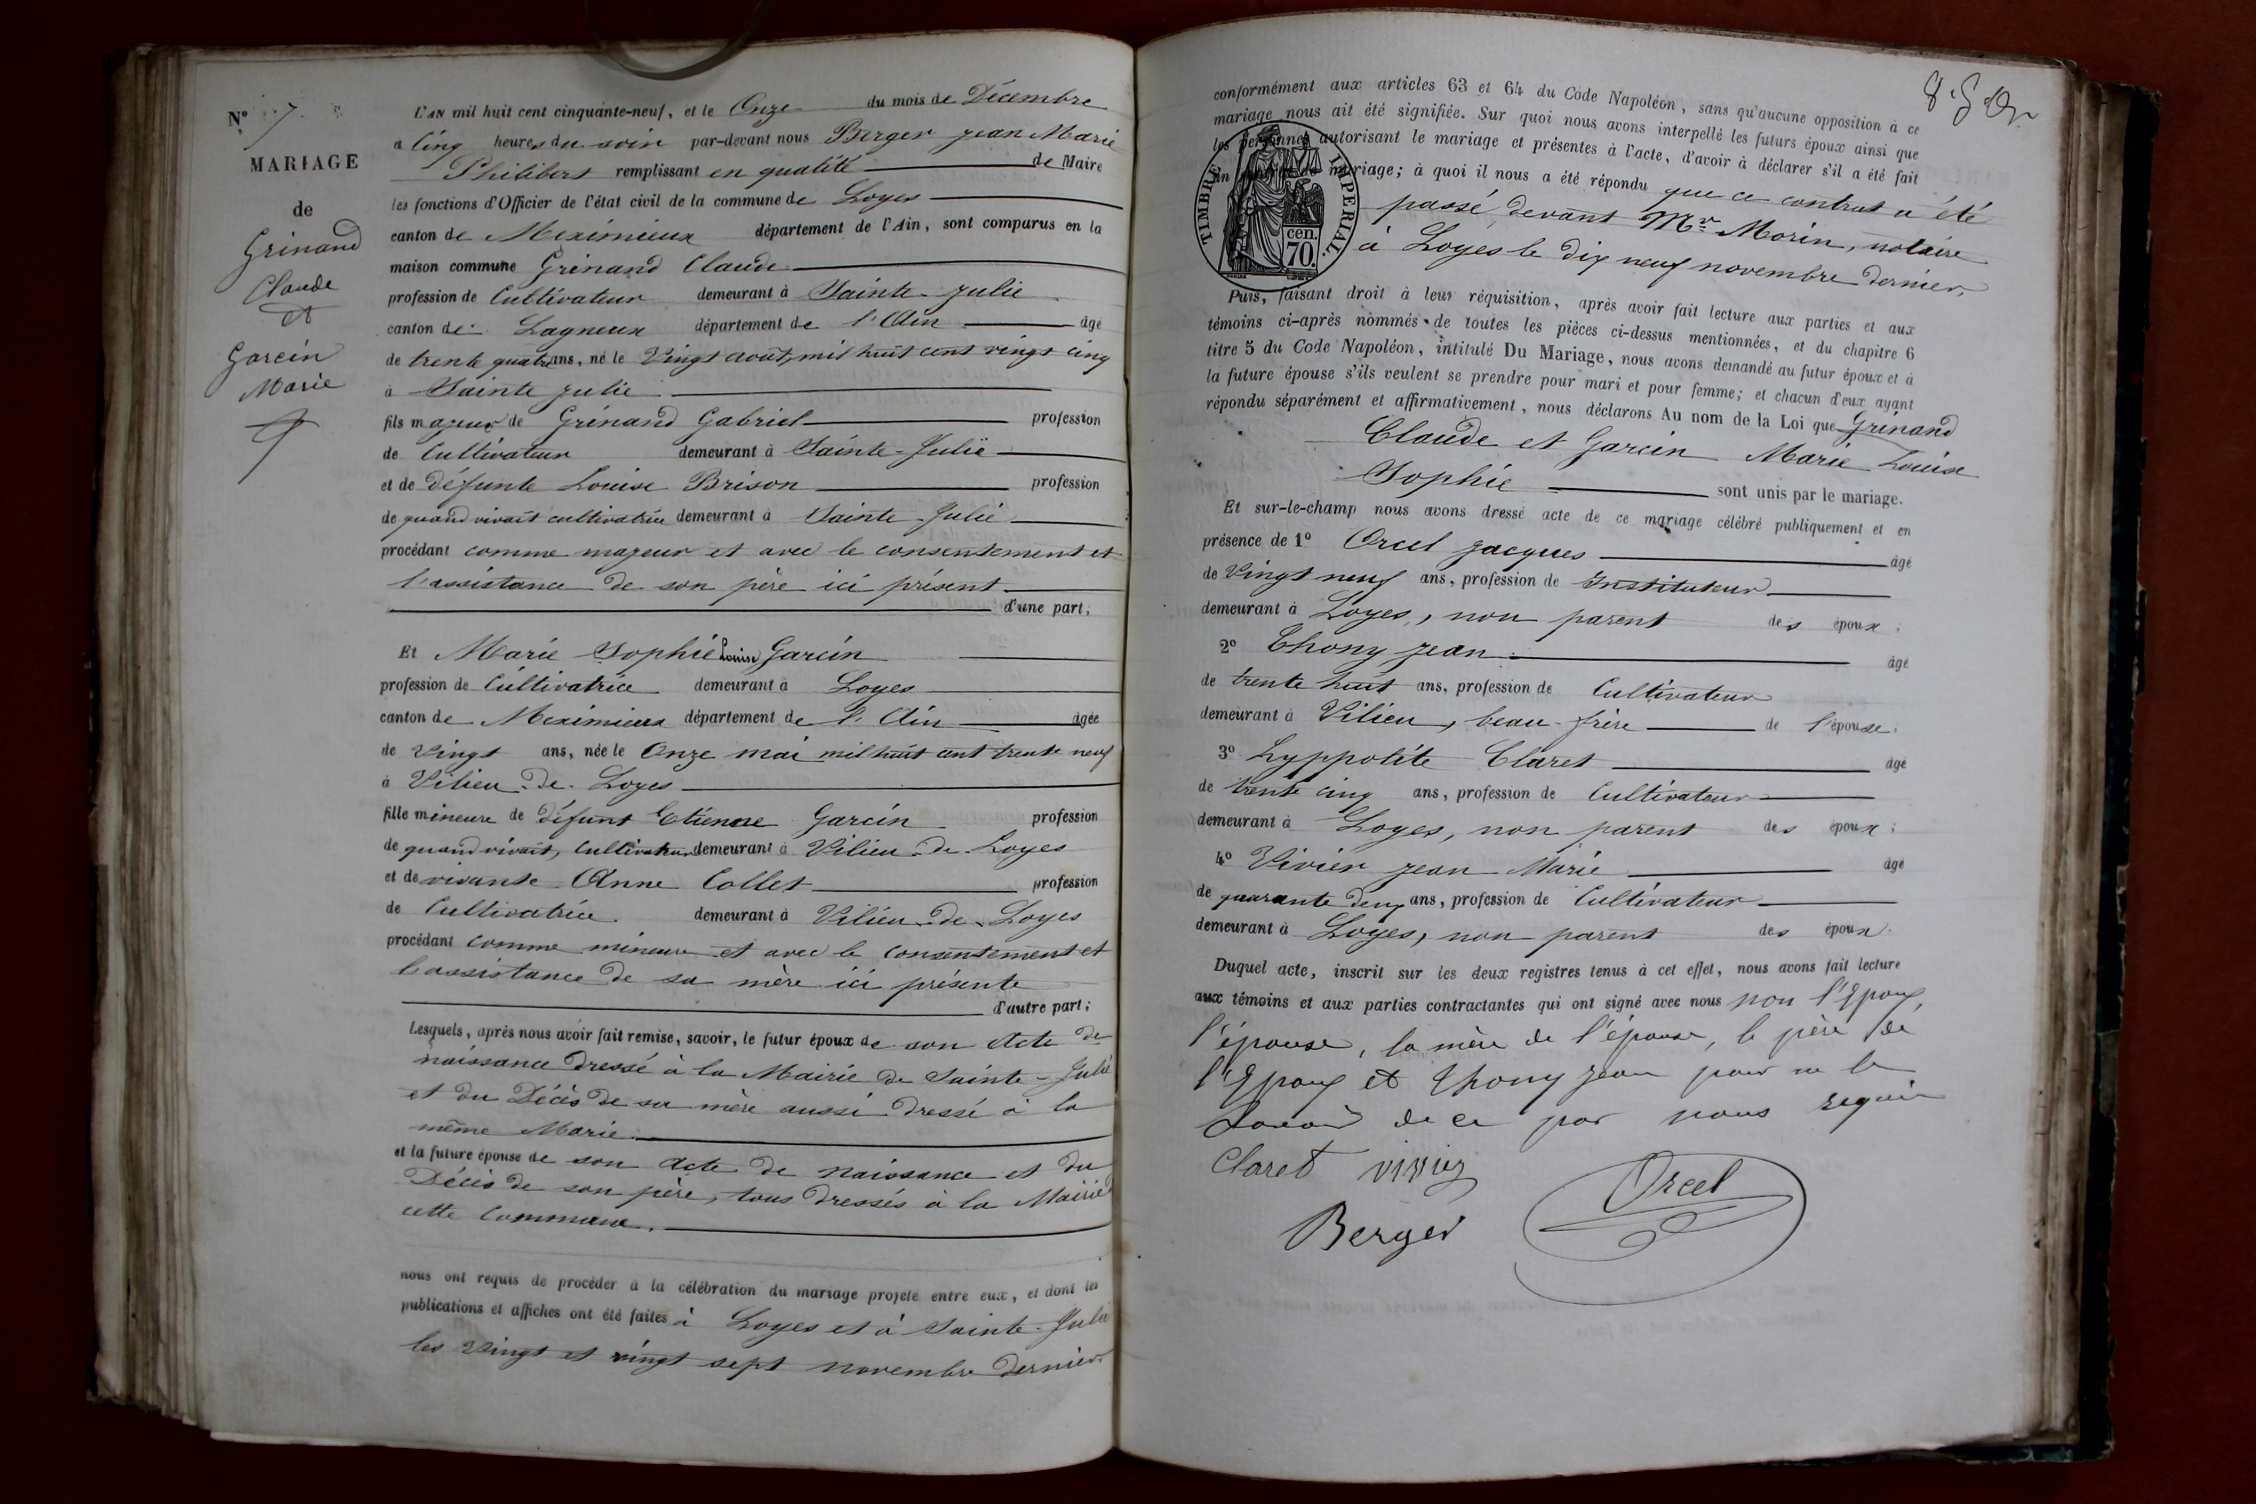 N° 7
MARIAGE
de
Grinand
Claude
et
Garcin
Marie
L'AN mil huit cent cinquante-neuf, et le Onze du mois de Décembre
a Cinq heures du soir par-devant nous Berger Jean Marie
Philibert remplissant en qualité de Maire
les fonctions d'Officier de l'état civil de la commune de Loyes
canton de Meximieux département de l'Ain, sont comparus en la
maison commune Grinand Claude
profession de Cultivateur demeurant à Sainte-Julie
canton de Lagneux département de l'Ain âgé
de trente quatre ans, né le Vingt août mil huit cent vingt cinq
à Sainte Julie
fils majeur de Grinand Gabriel profession
de Cultivateur demeurant à Sainte-Julie
et de défunte Louise Brison profession
de quand vivait cultivatrice demeurant à Sainte-Julie
procédant comme majeur et avec le consentement et
l'assistance de son père ici présent
d'une part;
Et Marie Sophie Louise Garcin
profession de Cultivatrice demeurant à Loyes
canton de Meximieux département de l'Ain âgée
de Vingt ans, née le Onze mai mil huit cent trente neuf
à Vilieu-de-Loyes
fille mineure de défunt Etienne Garcin profession
de quand vivait, Cultivateur demeurant à Vilieu-de-Loyes
et de vivante Anne Collet profession
de Cultivatrice demeurant à Vilieu-de-Loyes
procédant comme mineure et avec le consentement et
l'assistance de sa mère ici présente
d'autre part;
Lesquels, après nous avoir fait remise, savoir, le futur époux de son Acte de
naissance dressé à la Mairie de Sainte-Julie
et du Décès de sa mère aussi dressé à la
même Marie
et la future épouse de son acte de naissance et du
Décès de son père, tous dressés à la Mairie
cette Commune.
nous ont requis de procéder à la célébration du mariage projeté entre eux, et dont les
publications et affiches ont été faites à Loyes et à Sainte-Julie
les Vingt et vingt sept novembre dernier
conformément aux articles 63 et 64 du Code Napoléon, sans qu'aucune opposition à ce
mariage nous ait été signifiée. Sur quoi nous avons interpellé les futurs époux ainsi que
les personnes autorisant le mariage et présentes à l'acte, d'avoir à déclarer s'il a été fait
un contrat de mariage; à quoi il nous a été répondu que ce contrat a été
passé devant Mr. Morin, notaire
à Loyes le dix neuf novembre dernier,
TIMBRE IMPERIAL.
cen.
70.
Puis, faisant droit à leur réquisition, après avoir fait lecture aux parties et aux
témoins ci-après nommés de toutes les pièces ci-dessus mentionnées, et du chapitre 6
titre 5 du Code Napoléon, intitulé Du Mariage, nous avons demandé au futur époux et à
la future épouse s'ils veulent se prendre pour mari et pour femme; et chacun d'eux ayant
répondu séparément et affirmativement, nous déclarons Au nom de la Loi que Grinand
Claude et Garcin Marie Louise
Sophie sont unis par le mariage.
Et sur-le-champ nous avons dressé acte de ce mariage célébré publiquement et en
présence de 1° Orcel Jacques âgé
de Vingt neuf ans, profession de Instituteur
demeurant à Loyes, non parent des époux;
2° Thony Jean âgé
de trente huit ans, profession de Cultivateur
demeurant à Vilieu, beau-frère de l'épouse;
3° Hyppolite Claret âgé
de trente cinq ans, profession de Cultivateur
demeurant à Loyes, non parent des époux;
4° Vivier Jean Marie âgé
de quarante deux ans, profession de Cultivateur
demeurant à Loyes, non parent des époux.
Duquel acte, inscrit sur les deux registres tenus à cet effet, nous avons fait lecture
aux témoins et aux parties contractantes qui ont signé avec nous non l'Epoux,
l'épouse, la mère de l'épouse, le père de
l'Epoux et Thony Jean pour ne le
savoir de ce par nous requis
Claret Vivier
Orcel
Berger